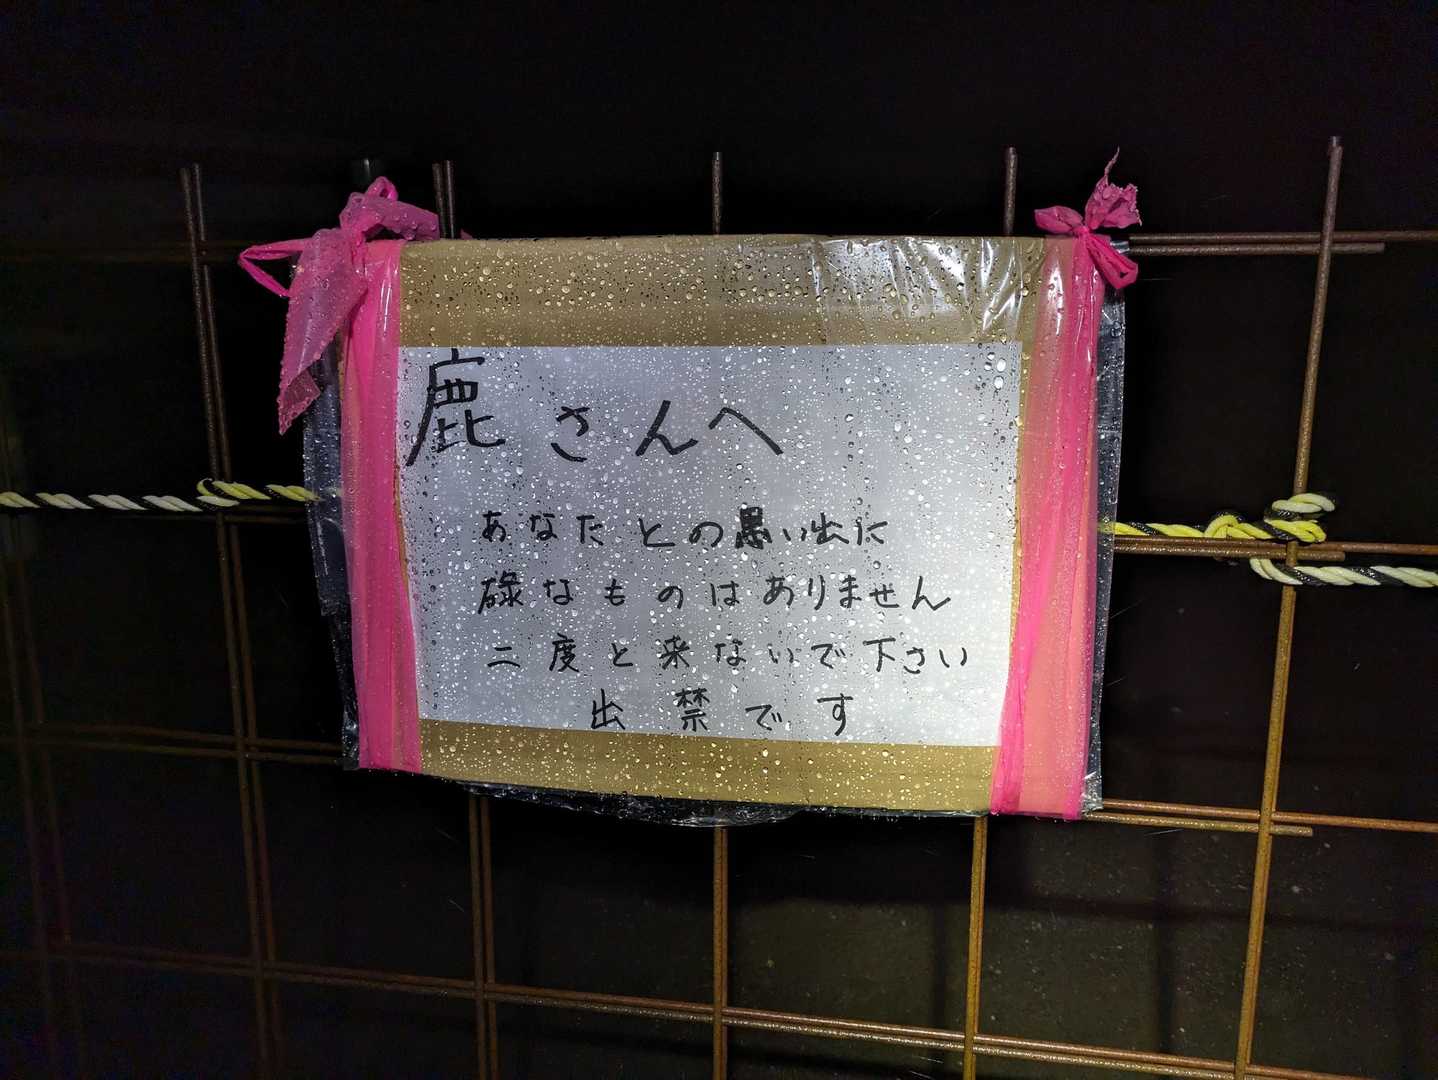 鹿さんへ
あなたとの思い出に
碌なものはありません
二度と来ないで下さい
出禁です